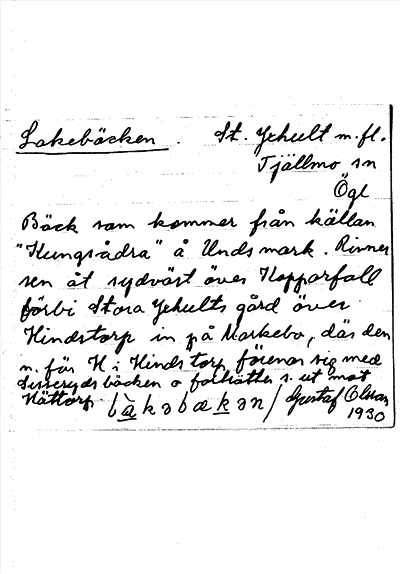 Lakebäcken. St. Jehult m.fl.
Tjällmo sn
Ögl
Bäck som kommer från källan
"Kungsådra" å Unds mark. Rinner
sen åt sydväst över Kopparfall
förbi Stora Jehults gård över
Hindstorp in på Markebo, där den
n. för H i Hindstorp förenar sig med
bäcken o fortsätter s. ut mot
Hättorp.
Gustaf Olsson
1930